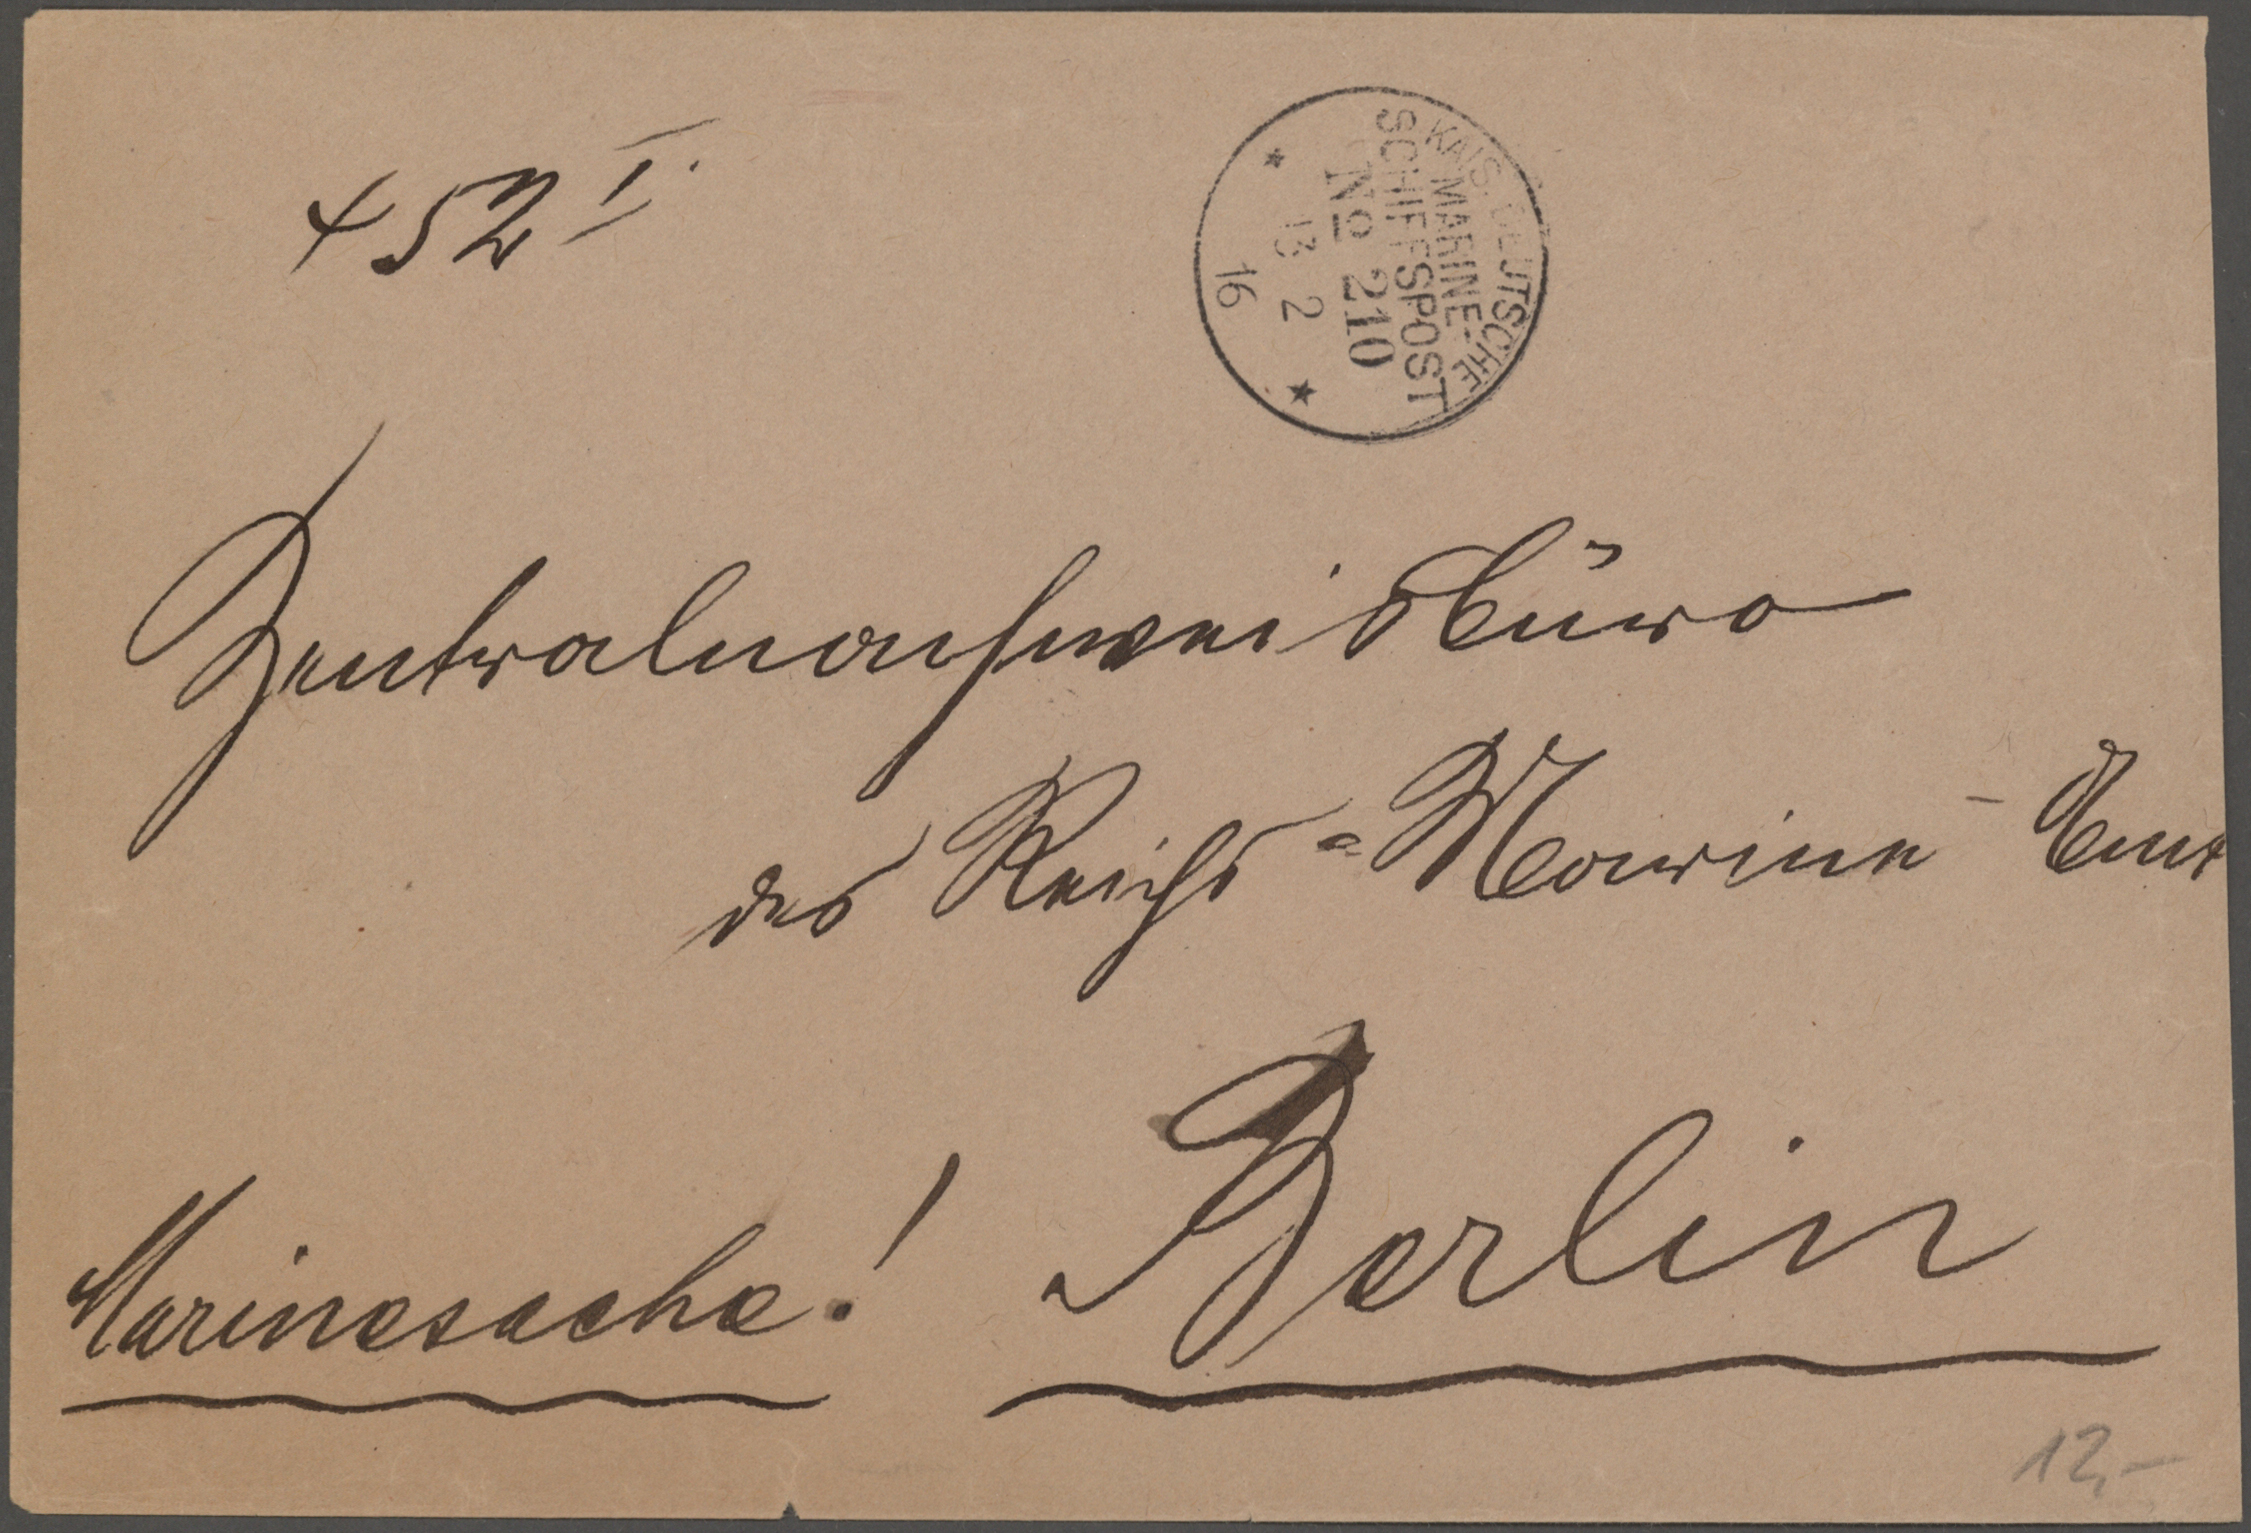 452 I.
KAIS. DEUTSCHE
MARINE-
SCHIFFSPOST
No 210
13 2
16
Zentralnachweisbüro
des Reichs-Marine-Amt
Berlin
Marinesache!
12,-